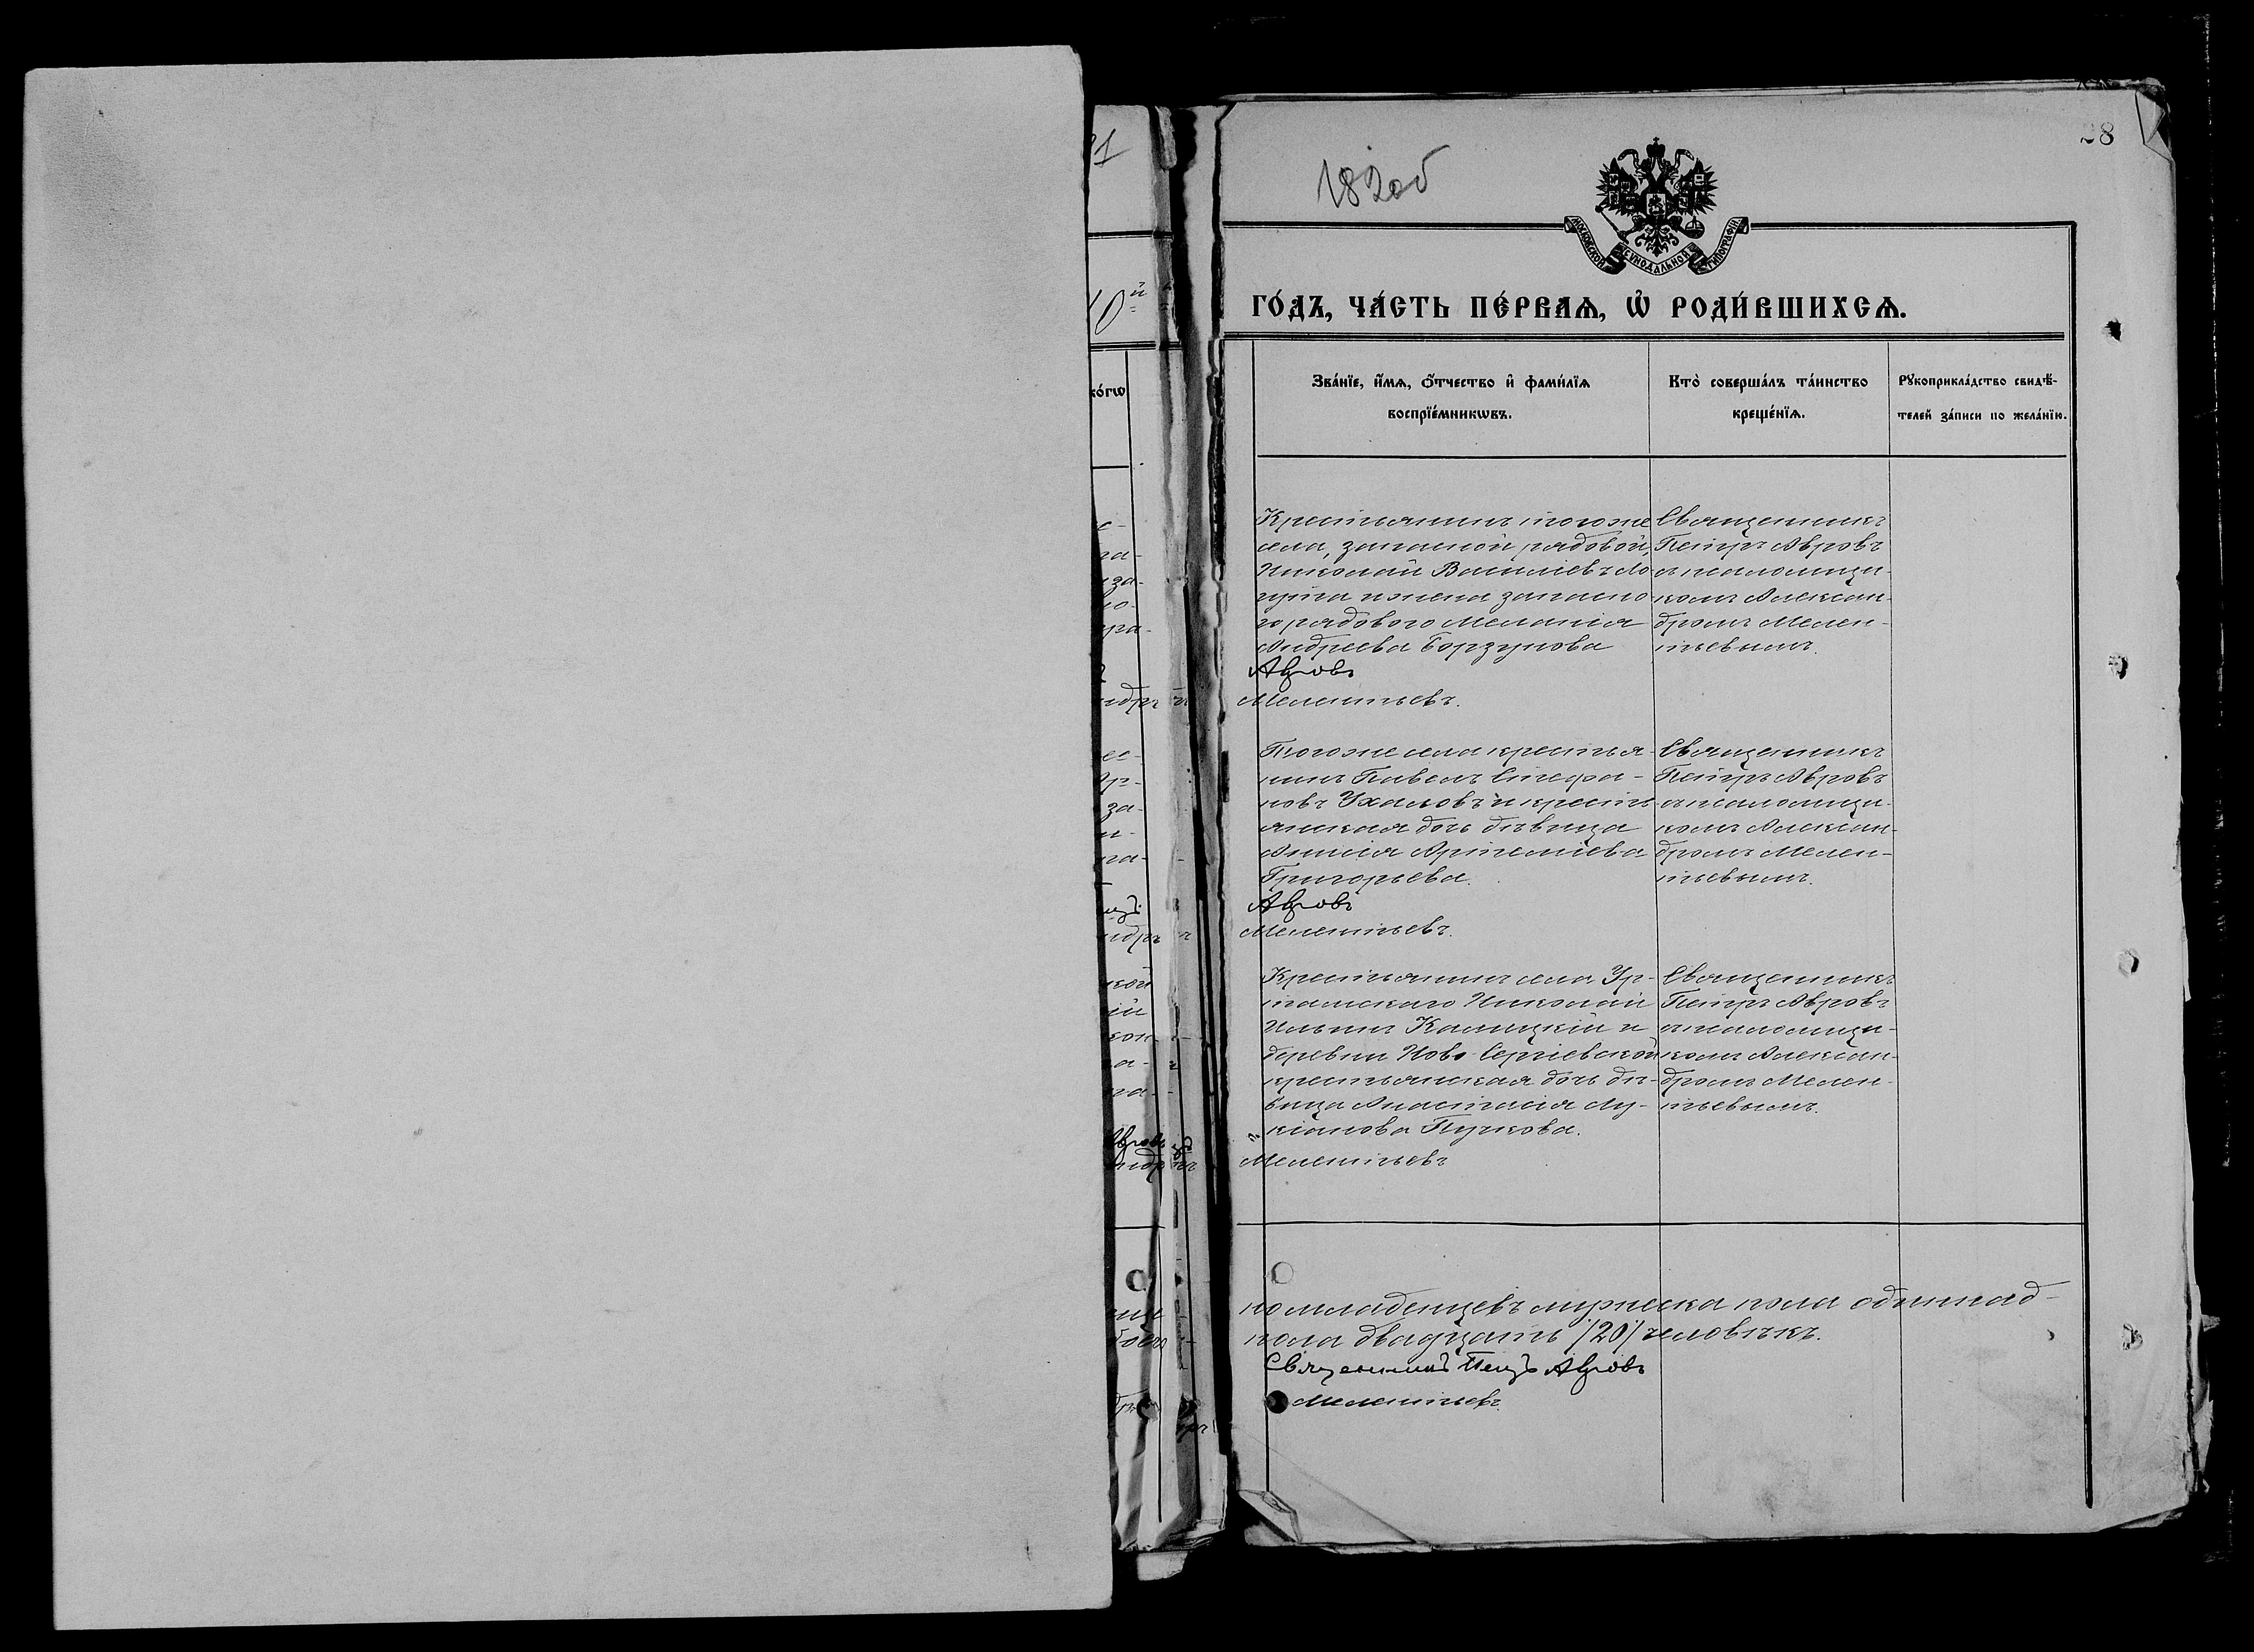 28
182об
МОСКОВСКОЙ СѴНОДАЛЬНОЙ ТИПОГРАФІИ
ГО́ДЪ, ЧА́СТЬ ПЕ́РВАѦ, Ѡ҆ РОДИ́ВШИХСѦ.
Зва́нїе, и҆́мѧ, ѻ҆́тчество и҆ фами́лїѧ
воспрїе́мникѡвъ.
Кто̀ соверша́лъ та́инство
креще́нїѧ.
Рꙋкоприкла́дство свидѣ́-
телей за́писи по жела́нїю.
Крестьянинъ тогоже
села, запасной рядовой,
Николай Васильевъ Ло-
гута и жена запасно-
го рядового Меланія
Андреева Борзунова
Авровъ
Мелентьевъ.
Священникъ
Петръ Авровъ
съ псаломщи-
комъ Алексан-
дромъ Мелен-
тьевымъ.
Тогоже села крестья-
нинъ Павелъ Стефа-
новъ Ухаловъ и кресть-
янская дочь дѣвица
Анисія Артеміева
Григорьева.
Авровъ
Мелентьевъ.
Священникъ
Петръ Авровъ
съ псаломщи-
комъ Алексан-
дромъ Мелен-
тьевымъ.
Крестьянинъ села Ур-
тамскаго Николай
Ильинъ Калицкій и
деревни Ново-Сергіевской
крестьянская дочь дѣ-
вица Анастасія Лу-
кіанова Пучкова.
Мелентьевъ
Священникъ
Петръ Авровъ
съ псаломщи-
комъ Алексан-
дромъ Мелен-
тьевымъ.
но младенцевъ мужеска пола одиннад-
пола двадцать /20/ человѣкъ.
Священникъ Петръ Авровъ
Мелентьевъ.